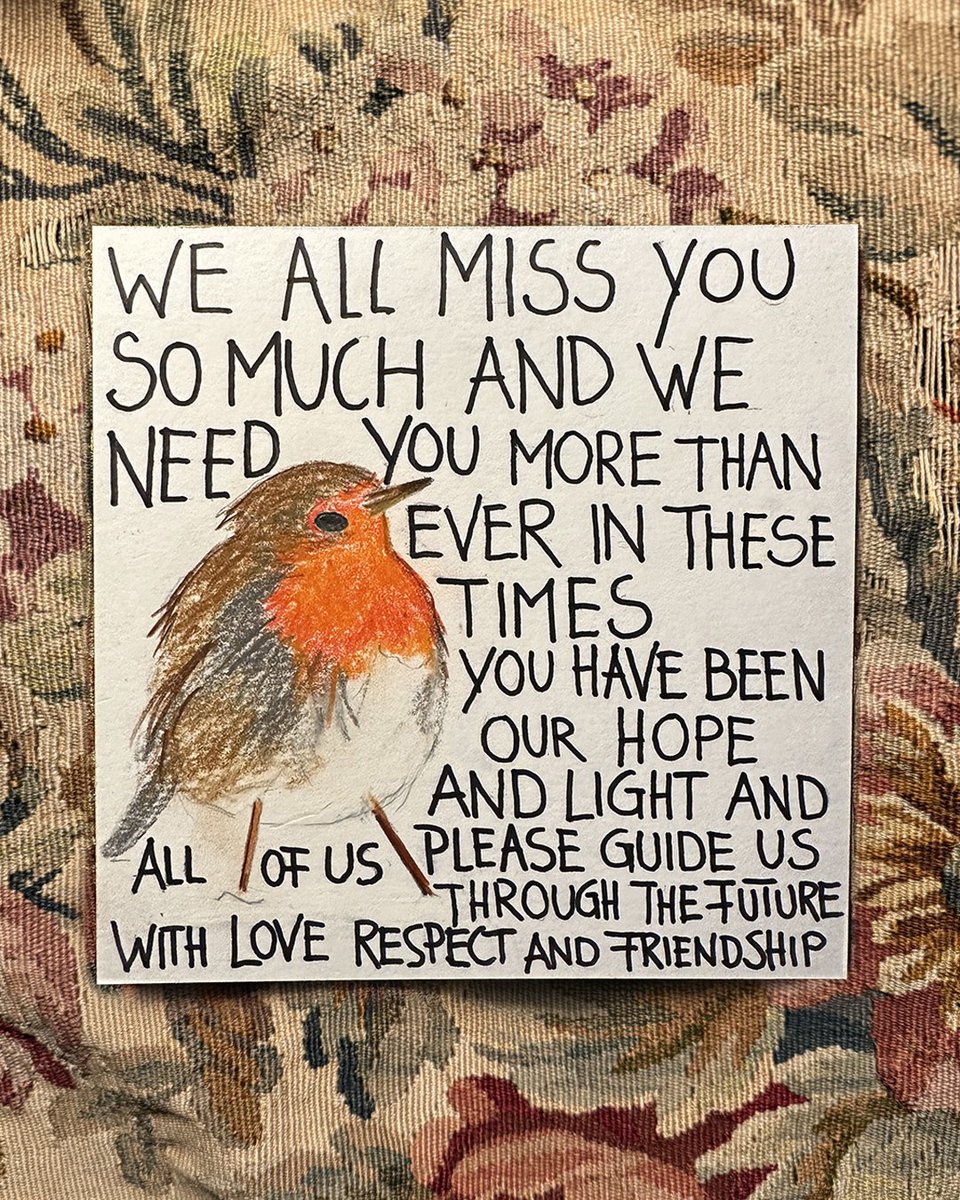 WE ALL MISS YOU
SO MUCH AND WE
NEED YOU MORE THAN
EVER IN THESE
TIMES
YOU HAVE BEEN
OUR HOPE
AND LIGHT AND
PLEASE GUIDE US
THROUGH THE FUTURE
ALL OF US
WITH LOVE RESPECT AND FRIENDSHIP